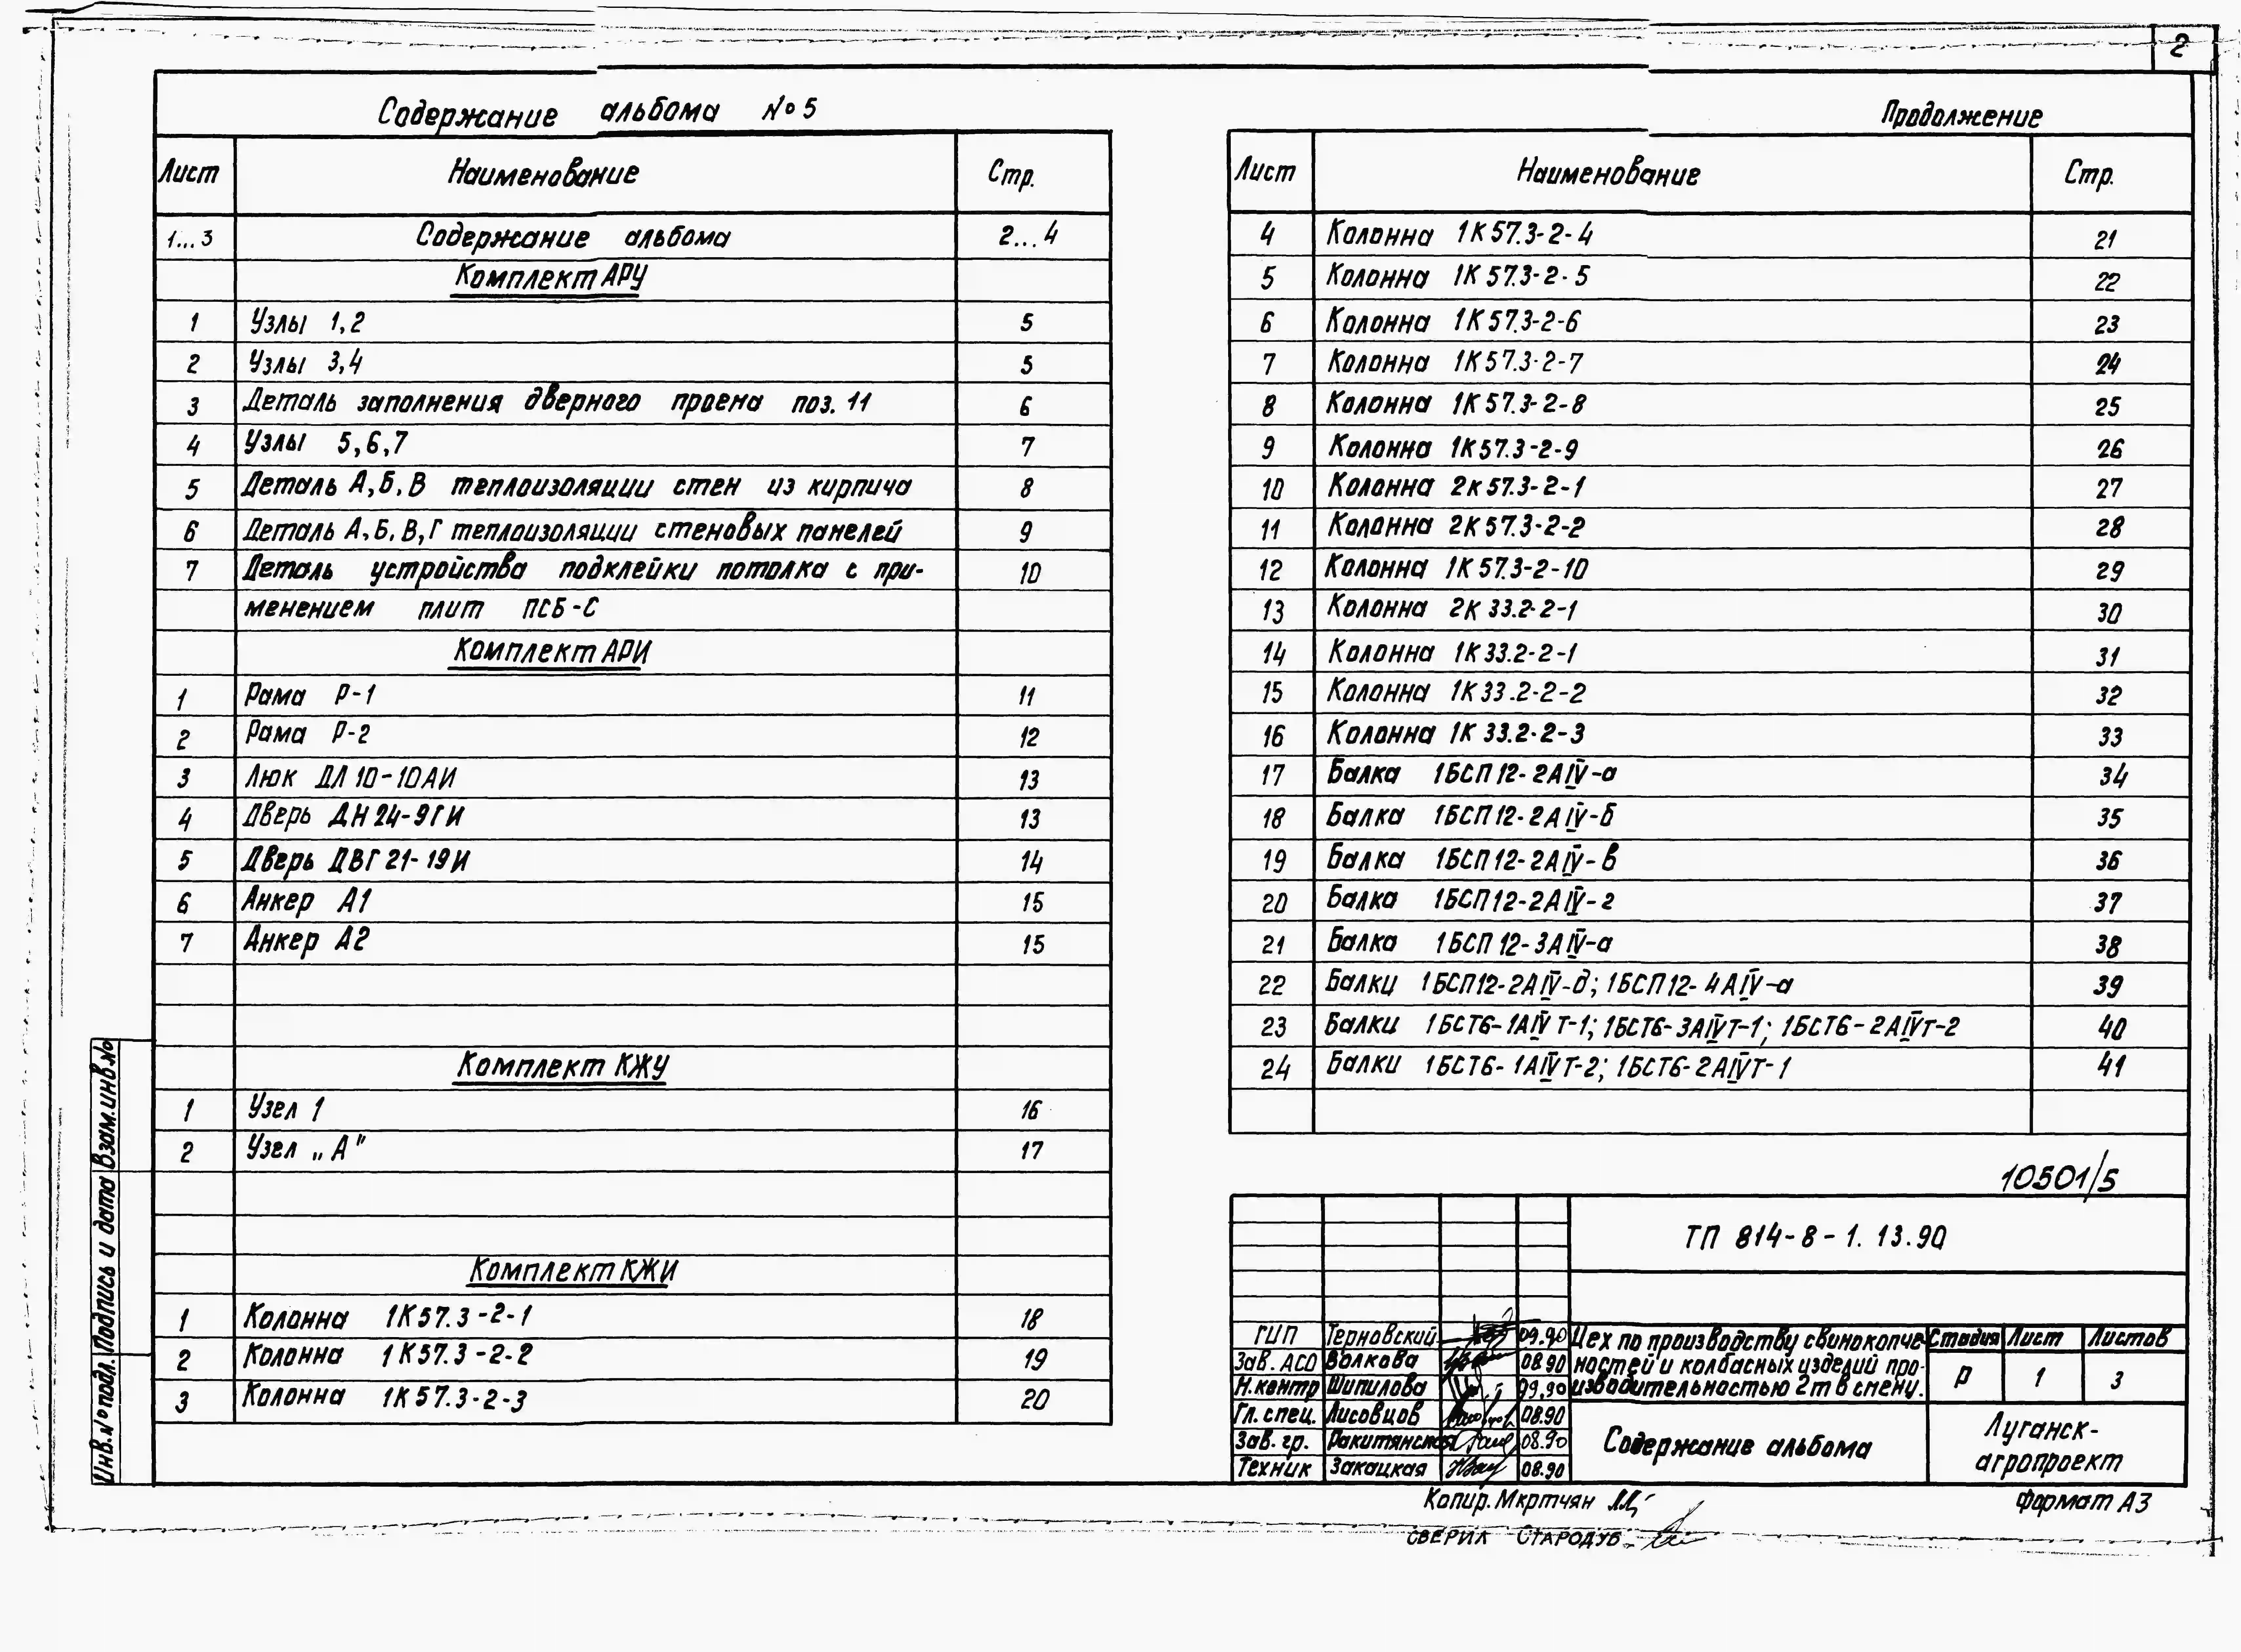 2
Содержание альбома №5
Лист Наименование Стр.
1...3 Содержание альбома 2...4
Комплект АРУ
1 Узлы 1,2 5
2 Узлы 3,4 5
3 Деталь заполнения дверного проема поз. 11 6
4 Узлы 5,6,7 7
5 Деталь А,Б,В теплоизоляции стен из кирпича 8
6 Деталь А,Б,В,Г теплоизоляции стеновых панелей 9
7 Деталь устройства подклейки потолка с при- 10
менением плит ПСБ-С
Комплект АРИ
1 Рама Р-1 11
2 Рама Р-2 12
3 Люк ДЛ 10-10АИ 13
4 Дверь ДН 24-9ГИ 13
5 Дверь ДВГ 21-19И 14
6 Анкер А1 15
7 Анкер А2 15
Комплект КЖУ
1 Узел 1 16
2 Узел „А" 17
Комплект КЖИ
1 Колонна 1К57.3-2-1 18
2 Колонна 1К57.3-2-2 19
3 Колонна 1К57.3-2-3 20
Продолжение
Лист Наименование Стр.
4 Колонна 1К57.3-2-4 21
5 Колонна 1К57.3-2-5 22
6 Колонна 1К57.3-2-6 23
7 Колонна 1К57.3-2-7 24
8 Колонна 1К57.3-2-8 25
9 Колонна 1К57.3-2-9 26
10 Колонна 2К57.3-2-1 27
11 Колонна 2К57.3-2-2 28
12 Колонна 1К57.3-2-10 29
13 Колонна 2К33.2-2-1 30
14 Колонна 1К33.2-2-1 31
15 Колонна 1К33.2-2-2 32
16 Колонна 1К33.2-2-3 33
17 Балка 1БСП12-2АIV-а 34
18 Балка 1БСП12-2АIV-б 35
19 Балка 1БСП12-2АIV-в 36
20 Балка 1БСП12-2АIV-г 37
21 Балка 1БСП12-3АIV-а 38
22 Балки 1БСП12-2АIV-д; 1БСП12-4АIV-а 39
23 Балки 1БСТ6-1АIVТ-1; 1БСТ6-3АIVТ-1; 1БСТ6-2АIVТ-2 40
24 Балки 1БСТ6-1АIVТ-2; 1БСТ6-2АIVТ-1 41
10501/5
ТП 814-8-1.13.90
ГИП Терновский 09.90
Зав. АСО Волкова 08.90
Н.контр Шипилова 09.90
Гл. спец. Лисовцов 08.90
Зав. гр. Ракитянская 08.90
Техник Закацкая 08.90
Цех по производству свинокопче-
ностей и колбасных изделий про-
изводительностью 2т в смену.
Стадия Лист Листов
Р 1 3
Содержание альбома
Луганск-
агропроект
Копир. Мкртчян
Формат А3
СВЕРИЛ СТАРОДУБ
Инв.№ подл. Подпись и дата Взам.инв.№